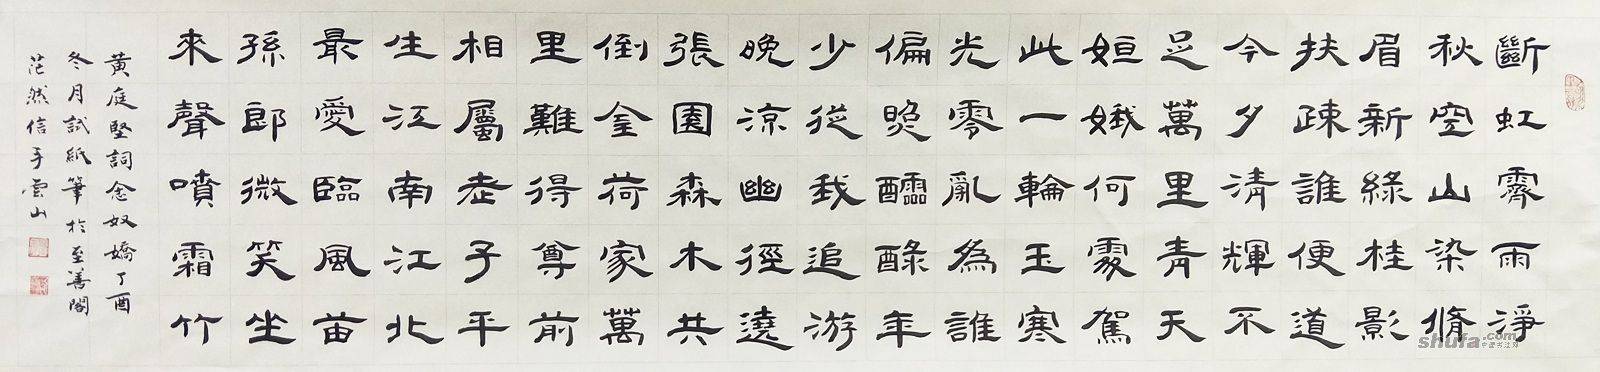 斷虹霽雨淨
秋空山染脩
眉新綠桂影
扶疎誰便道
今夕清輝不
足萬里青天
姮娥何處駕
此一輪玉寒
光零亂為誰
偏照醽醁年
少從我追游
晚涼幽徑遶
張園森木共
倒金荷家萬
里難得尊前
相屬老子平
生江南江北
最愛臨風笛
孫郎微笑坐
來聲噴霜竹
黃庭堅詞念奴嬌丁酉
冬月試紙筆於至善閣
茫然信手雲山
shufa.com